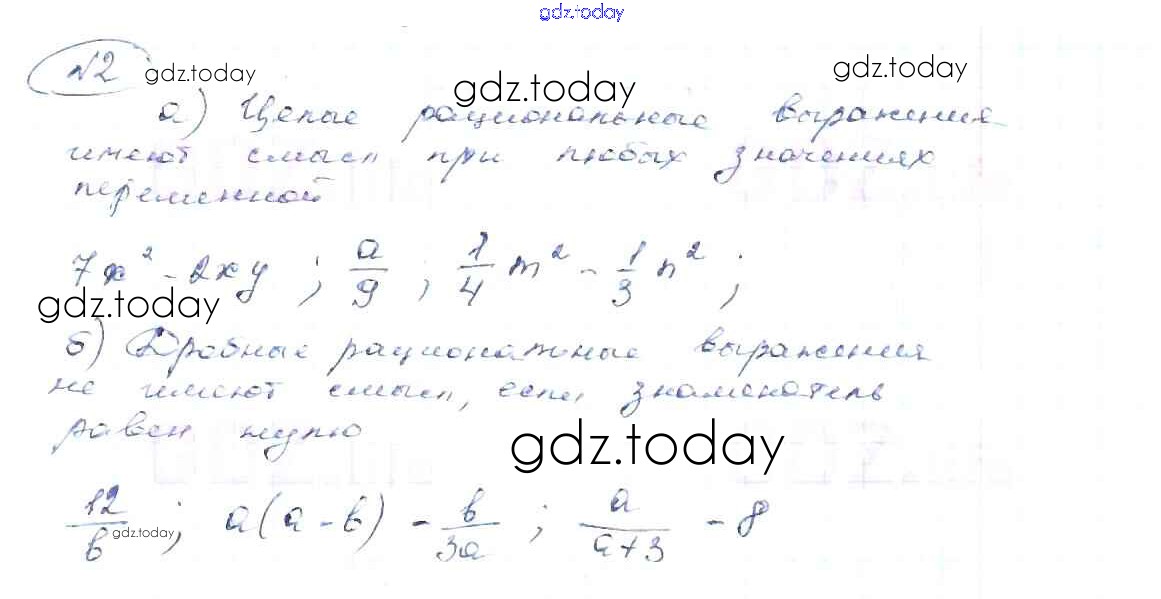 gdz.today
№2 gdz.today gdz.today gdz.today
а) Целые рациональные выражения
имеют смысл при любых значениях
переменной
7x² - 2xy ; a/9 ; 1/4 m² - 1/3 n² ;
gdz.today
б) Дробные рациональные выражения
не имеют смысл, если знаменатель
равен нулю
gdz.today
12/b ; a(a-b) - b/3a ; a/a+3 - 8
gdz.today